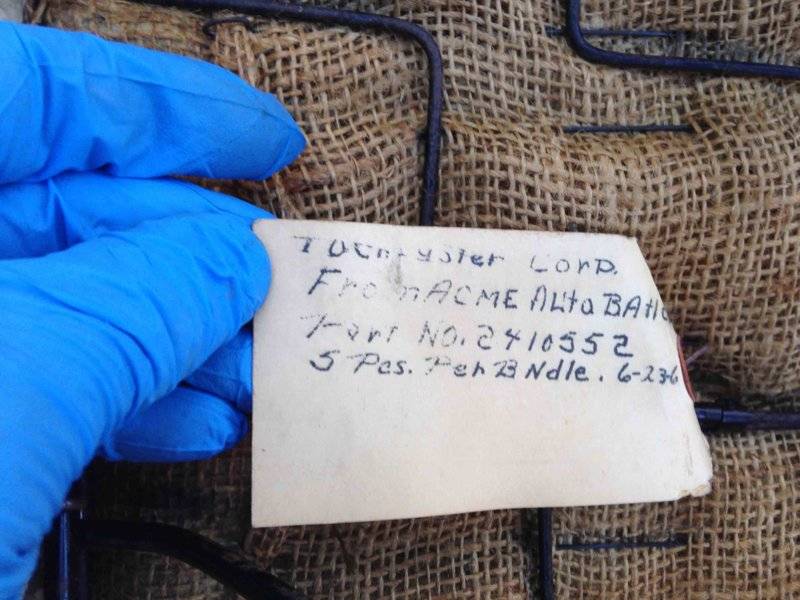 To Chrysler Corp.
From ACME Auto BAtt
Part No. 2410552
5 Pcs. Per BNdle. 6-23-6